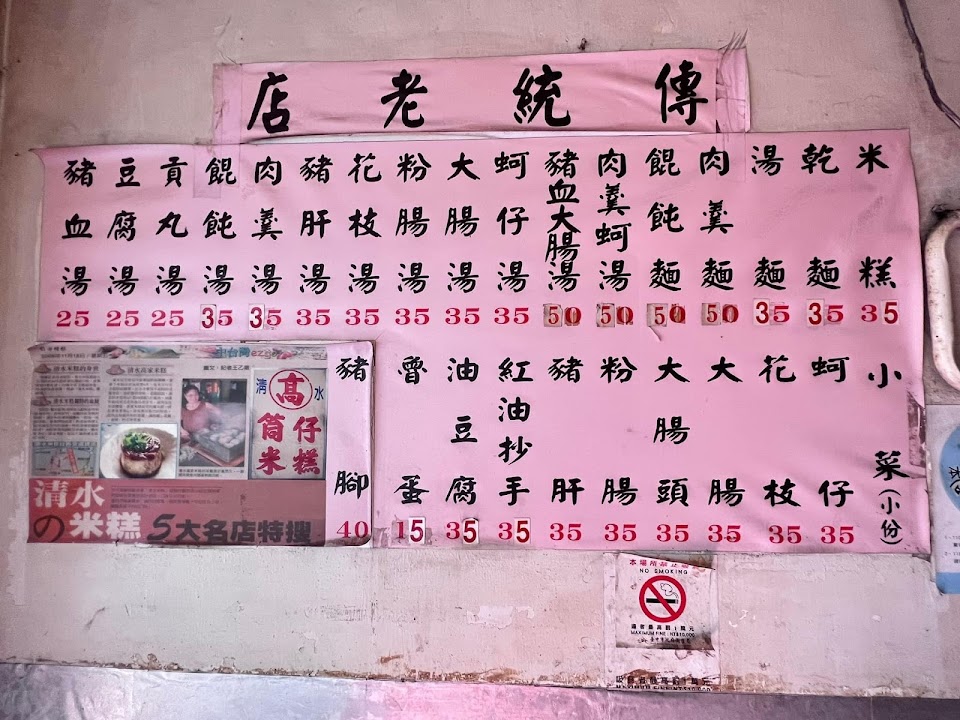 傳統老店
米糕 35
乾麵 35
湯麵 35
肉羹麵 50
餛飩麵 50
肉羹蚵湯 50
豬血大腸湯 50
蚵仔湯 35
大腸湯 35
粉腸湯 35
花枝湯 35
豬肝湯 35
肉羹湯 35
餛飩湯 35
貢丸湯 25
豆腐湯 25
豬血湯 25
小菜(小份)
蚵仔 35
花枝 35
大腸 35
大腸頭 35
粉腸 35
豬肝 35
紅油抄手 35
油豆腐 35
魯蛋 15
豬腳 40
中台灣
清水高家米糕
清 高 水
筒仔
米糕
清水
の米糕 5大名店特搜
NO SMOKING
MAXIMUM FINE : NT$10,000